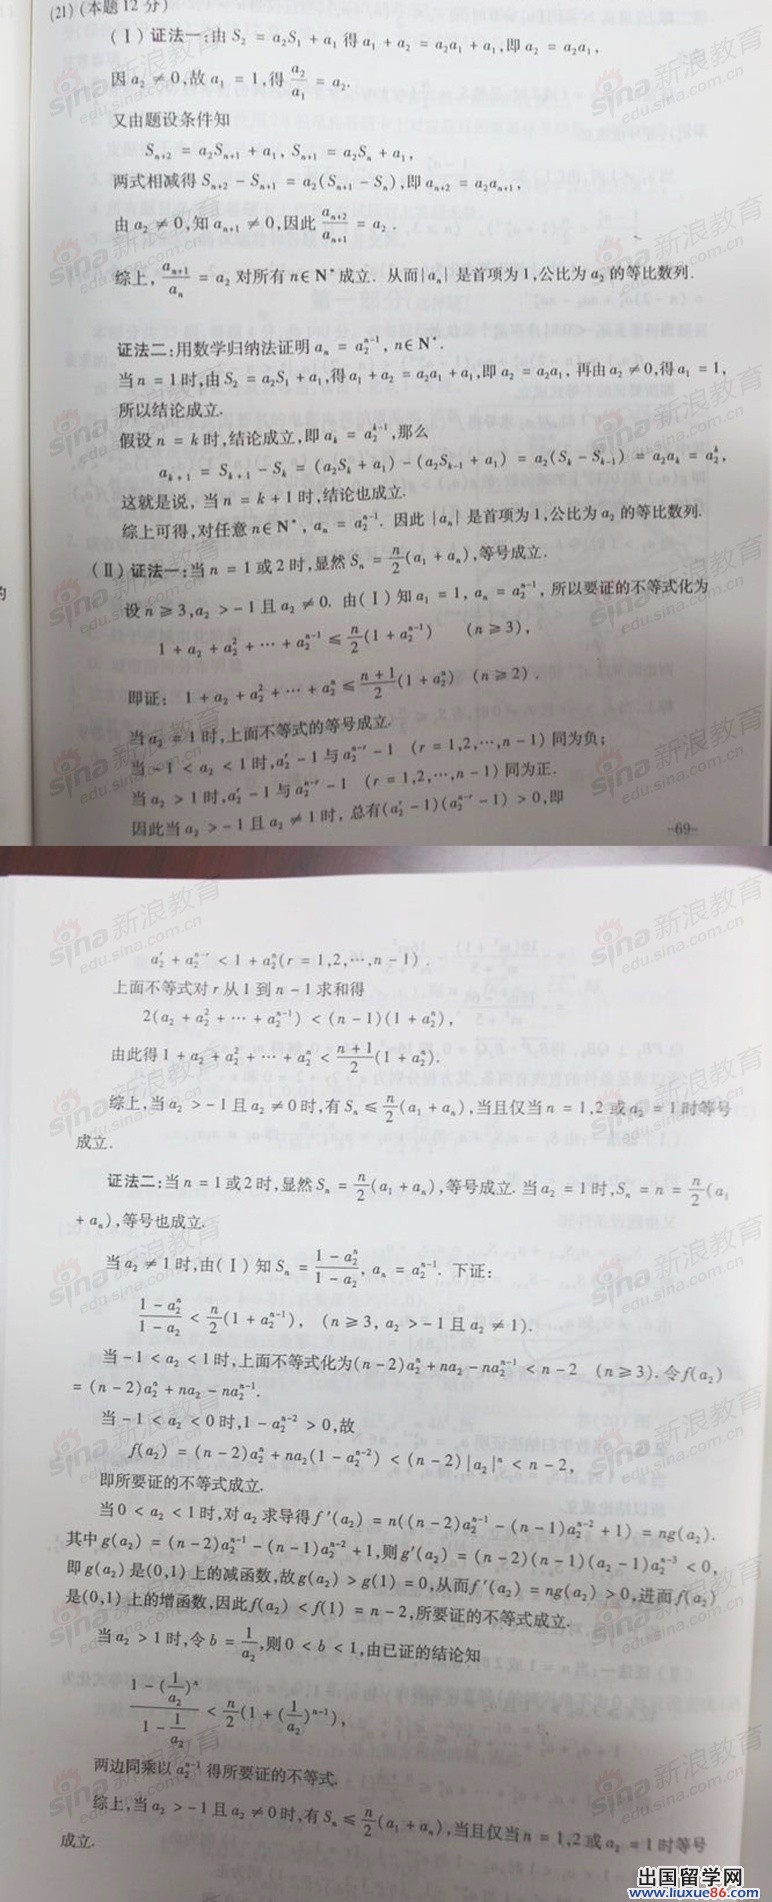 (21) (本题12分)
(Ⅰ) 证法一:由 S₂ = a₂S₁ + a₁ 得 a₁ + a₂ = a₂a₁ + a₁,即 a₂ = a₂a₁,
因 a₂ ≠ 0,故 a₁ = 1,得 a₂/a₁ = a₂.
又由题设条件知
Sₙ₊₂ = a₂Sₙ₊₁ + a₁, Sₙ₊₁ = a₂Sₙ + a₁,
两式相减得 Sₙ₊₂ − Sₙ₊₁ = a₂(Sₙ₊₁ − Sₙ),即 aₙ₊₂ = a₂aₙ₊₁,
由 a₂ ≠ 0,知 aₙ₊₁ ≠ 0,因此 aₙ₊₂/aₙ₊₁ = a₂.
综上, aₙ₊₁/aₙ = a₂ 对所有 n∈N* 成立. 从而{aₙ}是首项为1,公比为 a₂ 的等比数列.
证法二:用数学归纳法证明 aₙ = a₂ⁿ⁻¹, n∈N*.
当 n = 1 时,由 S₂ = a₂S₁ + a₁,得 a₁ + a₂ = a₂a₁ + a₁,即 a₂ = a₂a₁, 再由 a₂ ≠ 0,得 a₁ = 1,
所以结论成立.
假设 n = k 时,结论成立,即 aₖ = a₂ᵏ⁻¹,那么
aₖ₊₁ = Sₖ₊₁ − Sₖ = (a₂Sₖ + a₁) − (a₂Sₖ₋₁ + a₁) = a₂(Sₖ − Sₖ₋₁) = a₂aₖ = a₂ᵏ,
这就是说, 当 n = k + 1 时,结论也成立.
综上可得,对任意 n∈N*, aₙ = a₂ⁿ⁻¹. 因此 {aₙ} 是首项为1,公比为 a₂ 的等比数列.
(Ⅱ) 证法一:当 n = 1 或 2 时,显然 Sₙ = n/2(a₁ + aₙ),等号成立.
设 n ≥ 3, a₂ > −1 且 a₂ ≠ 0. 由(Ⅰ)知 a₁ = 1, aₙ = a₂ⁿ⁻¹, 所以要证的不等式化为
1 + a₂ + a₂² + ⋯ + a₂ⁿ⁻¹ ≤ n/2(1 + a₂ⁿ⁻¹) (n ≥ 3),
即证: 1 + a₂ + a₂² + ⋯ + a₂ⁿ ≤ (n+1)/2(1 + a₂ⁿ) (n ≥ 2).
当 a₂ = 1 时,上面不等式的等号成立.
当 −1 < a₂ < 1 时, a₂ʳ − 1 与 a₂ⁿ⁻ʳ − 1 (r = 1,2,⋯,n − 1) 同为负;
当 a₂ > 1 时, a₂ʳ − 1 与 a₂ⁿ⁻ʳ − 1 (r = 1,2,⋯,n − 1) 同为正.
因此当 a₂ > −1 且 a₂ ≠ 1 时, 总有(a₂ʳ − 1)(a₂ⁿ⁻ʳ − 1) > 0,即
-69-
a₂ʳ + a₂ⁿ⁻ʳ < 1 + a₂ⁿ(r = 1,2,⋯,n − 1).
上面不等式对 r 从 1 到 n − 1 求和得
2(a₂ + a₂² + ⋯ + a₂ⁿ⁻¹) < (n − 1)(1 + a₂ⁿ),
由此得 1 + a₂ + a₂² + ⋯ + a₂ⁿ < (n+1)/2(1 + a₂ⁿ).
综上,当 a₂ > −1 且 a₂ ≠ 0 时,有 Sₙ ≤ n/2(a₁ + aₙ),当且仅当 n = 1,2 或 a₂ = 1 时等号
成立.
证法二:当 n = 1 或 2 时,显然 Sₙ = n/2(a₁ + aₙ),等号成立. 当 a₂ = 1 时, Sₙ = n = n/2(a₁
+ aₙ),等号也成立.
当 a₂ ≠ 1 时,由(Ⅰ)知 Sₙ = (1 − a₂ⁿ)/(1 − a₂), aₙ = a₂ⁿ⁻¹. 下证:
(1 − a₂ⁿ)/(1 − a₂) < n/2(1 + a₂ⁿ⁻¹), (n ≥ 3, a₂ > −1 且 a₂ ≠ 1).
当 −1 < a₂ < 1 时,上面不等式化为(n − 2)a₂ⁿ + na₂ − na₂ⁿ⁻¹ < n − 2 (n ≥ 3). 令 f(a₂)
= (n − 2)a₂ⁿ + na₂ − na₂ⁿ⁻¹.
当 −1 < a₂ < 0 时, 1 − a₂ⁿ⁻² > 0,故
f(a₂) = (n − 2)a₂ⁿ + na₂(1 − a₂ⁿ⁻²) < (n − 2)|a₂|ⁿ < n − 2,
即所要证的不等式成立.
当 0 < a₂ < 1 时,对 a₂ 求导得 f′(a₂) = n((n − 2)a₂ⁿ⁻¹ − (n − 1)a₂ⁿ⁻² + 1) = ng(a₂).
其中 g(a₂) = (n − 2)a₂ⁿ⁻¹ − (n − 1)a₂ⁿ⁻² + 1,则 g′(a₂) = (n − 2)(n − 1)(a₂ − 1)a₂ⁿ⁻³ < 0,
即 g(a₂) 是(0,1) 上的减函数,故 g(a₂) > g(1) = 0,从而 f′(a₂) = ng(a₂) > 0,进而 f(a₂)
是(0,1) 上的增函数,因此 f(a₂) < f(1) = n − 2,所要证的不等式成立.
当 a₂ > 1 时,令 b = 1/a₂,则 0 < b < 1,由已证的结论知
(1 − (1/a₂)ⁿ)/(1 − 1/a₂) < n/2(1 + (1/a₂)ⁿ⁻¹),
两边同乘以 a₂ⁿ⁻¹ 得所要证的不等式.
综上,当 a₂ > −1 且 a₂ ≠ 0 时,有 Sₙ ≤ n/2(a₁ + aₙ),当且仅当 n = 1,2 或 a₂ = 1 时等号
成立.
出国留学网
www.liuxue86.com